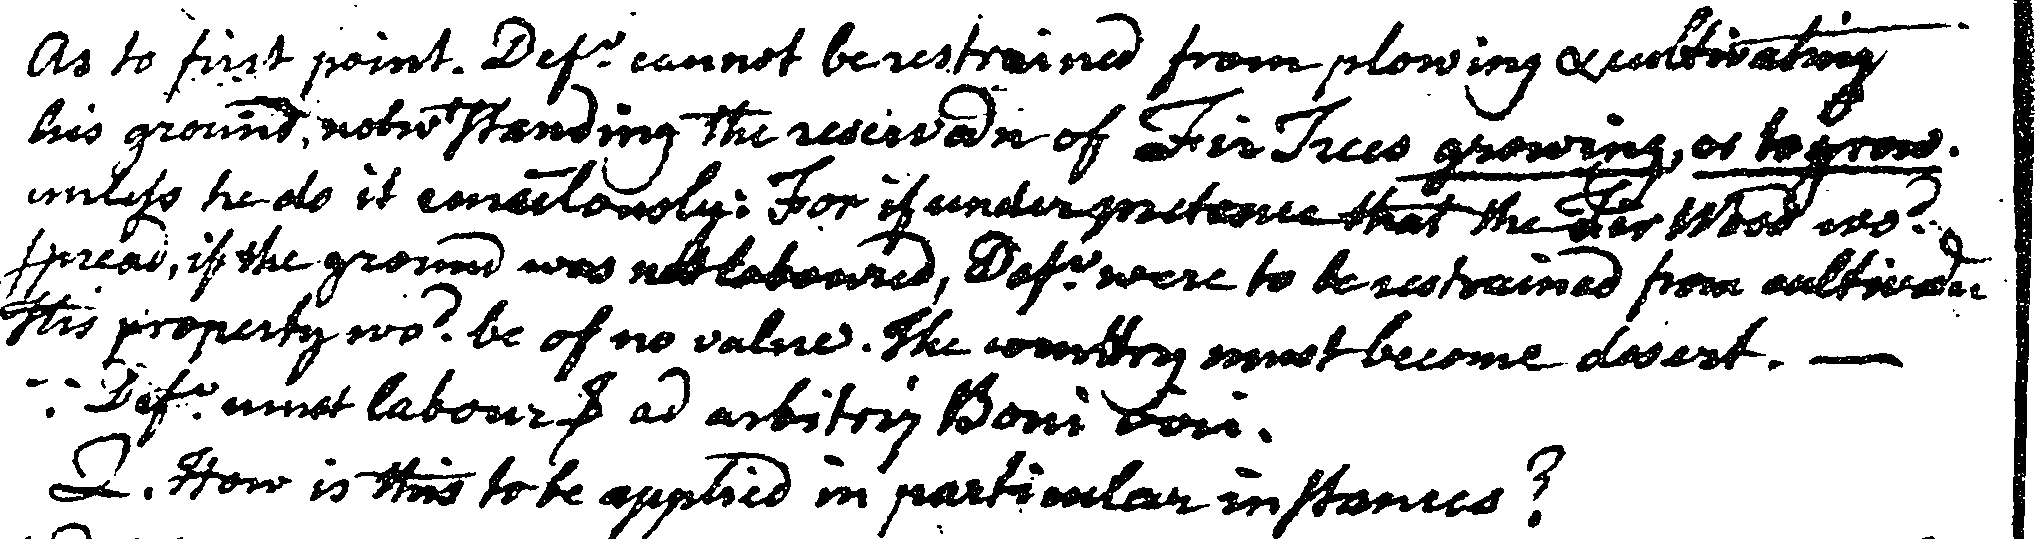 As to first point. Defr. cannot be restrained from plowing & cultivating
his ground, notwtstanding the reservaõn of Fir Trees growing, or to grow.
unless he do it emulously: For if under pretence that the Fir Wood wod.
spread, if the ground was not laboured, Defr. were to be restrained from cultivaõn
This property wod. be of no value. The country must become desert. —
Defr. must labour ad arbitrij Boni viri.
Q. How is this to be applied in particular instances?